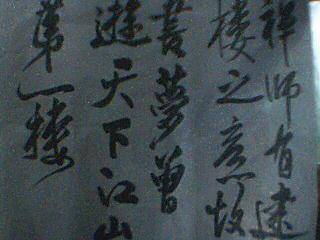 祥师有建
楼之意故
书梦曾
游天下江山
第一楼